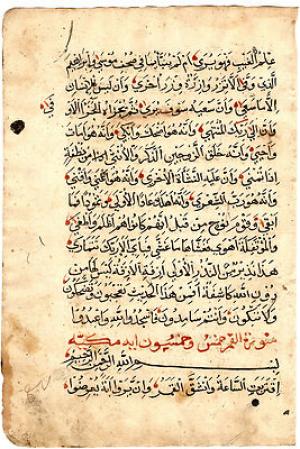 علم الغيب فهو يرى ام لم ينبأ بما في صحف موسى وابرهيم
الذي وفى الا تزر وازرة وزر اخرى وان ليس للانسان
الا ما سعى وان سعيه سوف يرى ثم يجزاه الجزاء الاوفى
وان الى ربك المنتهى وانه هو اضحك وابكى وانه هو امات
واحيى وانه خلق الزوجين الذكر والانثى من نطفة
اذا تمنى وان عليه النشاة الاخرى وانه هو اغنى واقنى
وانه هو رب الشعرى وانه اهلك عادا الاولى وثمود فما
ابقى وقوم نوح من قبل انهم كانوا هم اظلم واطغى
والمؤتفكة اهوى فغشيها ما غشى فباي الاء ربك تتمارى
هذا نذير من النذر الاولى ازفت الازفة ليس لها من
دون الله كاشفة افمن هذا الحديث تعجبون وتضحكون
ولا تبكون وانتم سامدون فاسجدوا لله واعبدوا
سورة القمر خمس وخمسون اية مكية
بسم الله الرحمن الرحيم
اقتربت الساعة وانشق القمر وان يروا اية يعرضوا